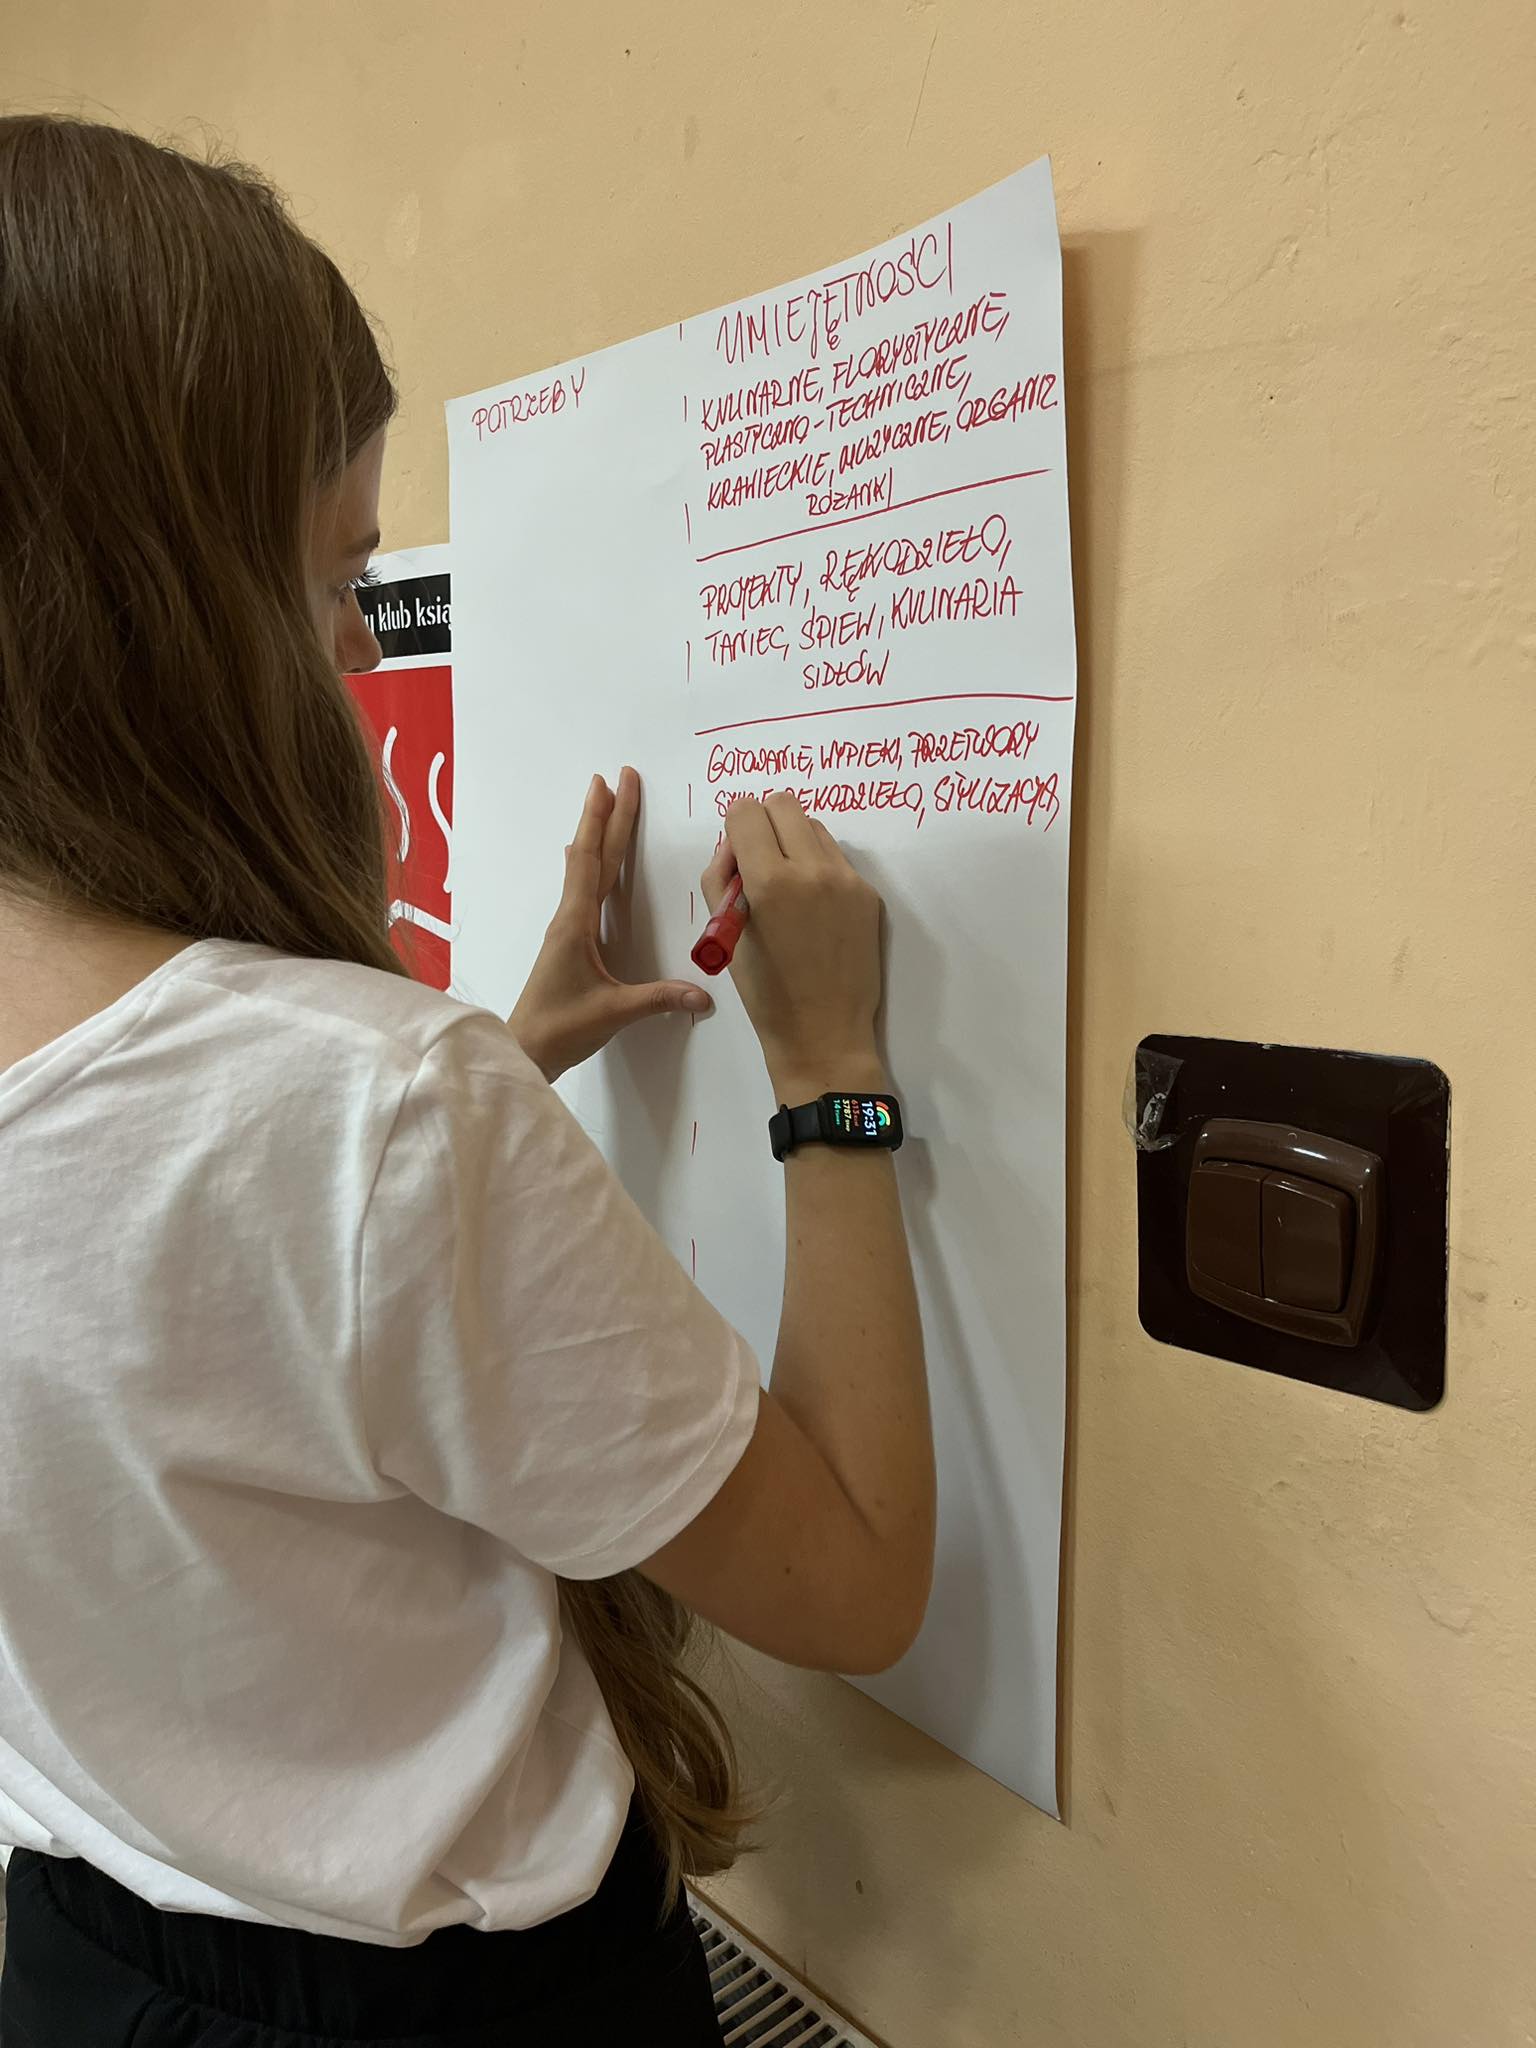 POTRZEBY
UMIEJĘTNOŚCI
KULINARNE, FLORYSTYCZNE,
PLASTYCZNO-TECHNICZNE,
KRAWIECKIE, MUZYCZNE, ORGANIZ.
RÓŻANKI
PROJEKTY, RĘKODZIEŁO,
TANIEC, ŚPIEW, KULINARIA
SIDŁÓW
GOTOWANIE, WYPIEKI, PRZETWORY
RĘKODZIEŁO, STYLIZACJA,
klub ksią
19:31
613 kcal
3787
14